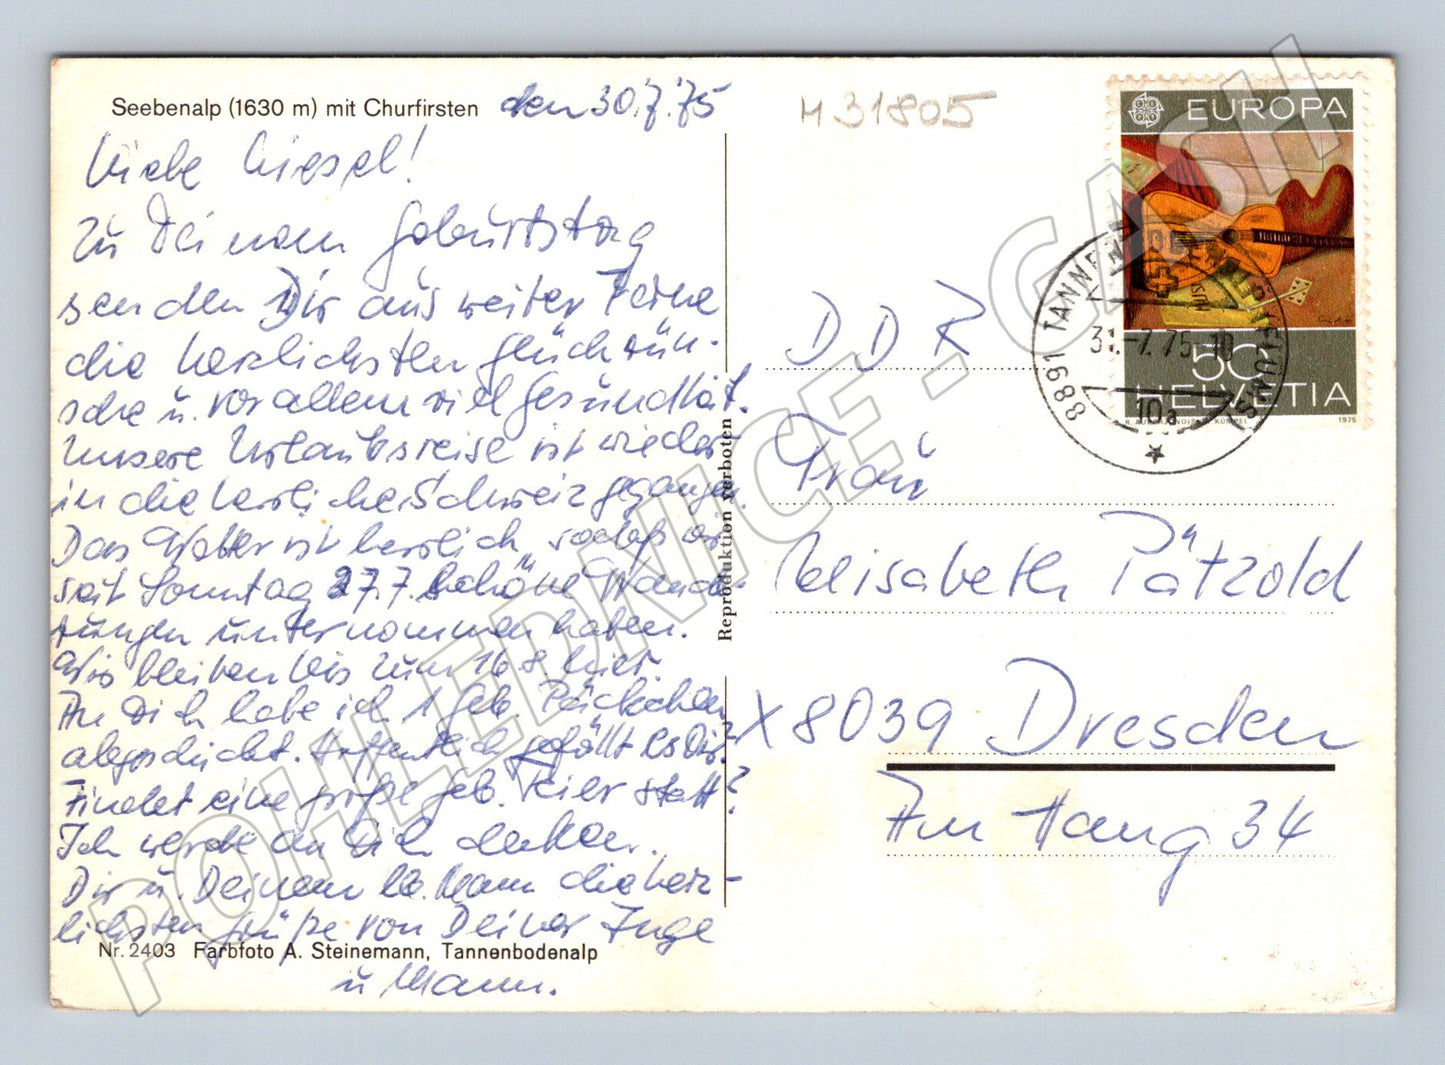 Seebenalp (1630 m) mit Churfirsten den 30.7.75
Liebe Liesel!
Zu Deinem Geburtstag
senden Dir aus weiter Ferne
die herzlichsten Glückwün-
sche u. vor allem viel Gesundheit.
Unsere Urlaubsreise ist wieder
in die herrliche Schweiz gegangen.
Das Wetter ist herrlich, sodaß wir
seit Sonntag 27.7 schöne Wande-
rungen unternommen haben.
Wir bleiben bis zum 16.8 hier.
An Dich habe ich 1 Geb. Päckchen
abgeschickt. Hoffentlich gefällt es Dir?
Findet eine große Geb. Feier statt?
Ich werde an Dich denken.
Dir u. Deinem lb. Mann die herz-
lichsten Grüße von Deiner Inge
u Mann.
Nr. 2403 Farbfoto A. Steinemann, Tannenbodenalp
Reproduktion verboten
M31805
EUROPA
50
HELVETIA
1975
8891 TANNENBODENALP
31.-7.75-10
10a
DDR
Frau
Elisabeth Pätzold
X8039 Dresden
Am Hang 34
POHLEDNICE - GASH